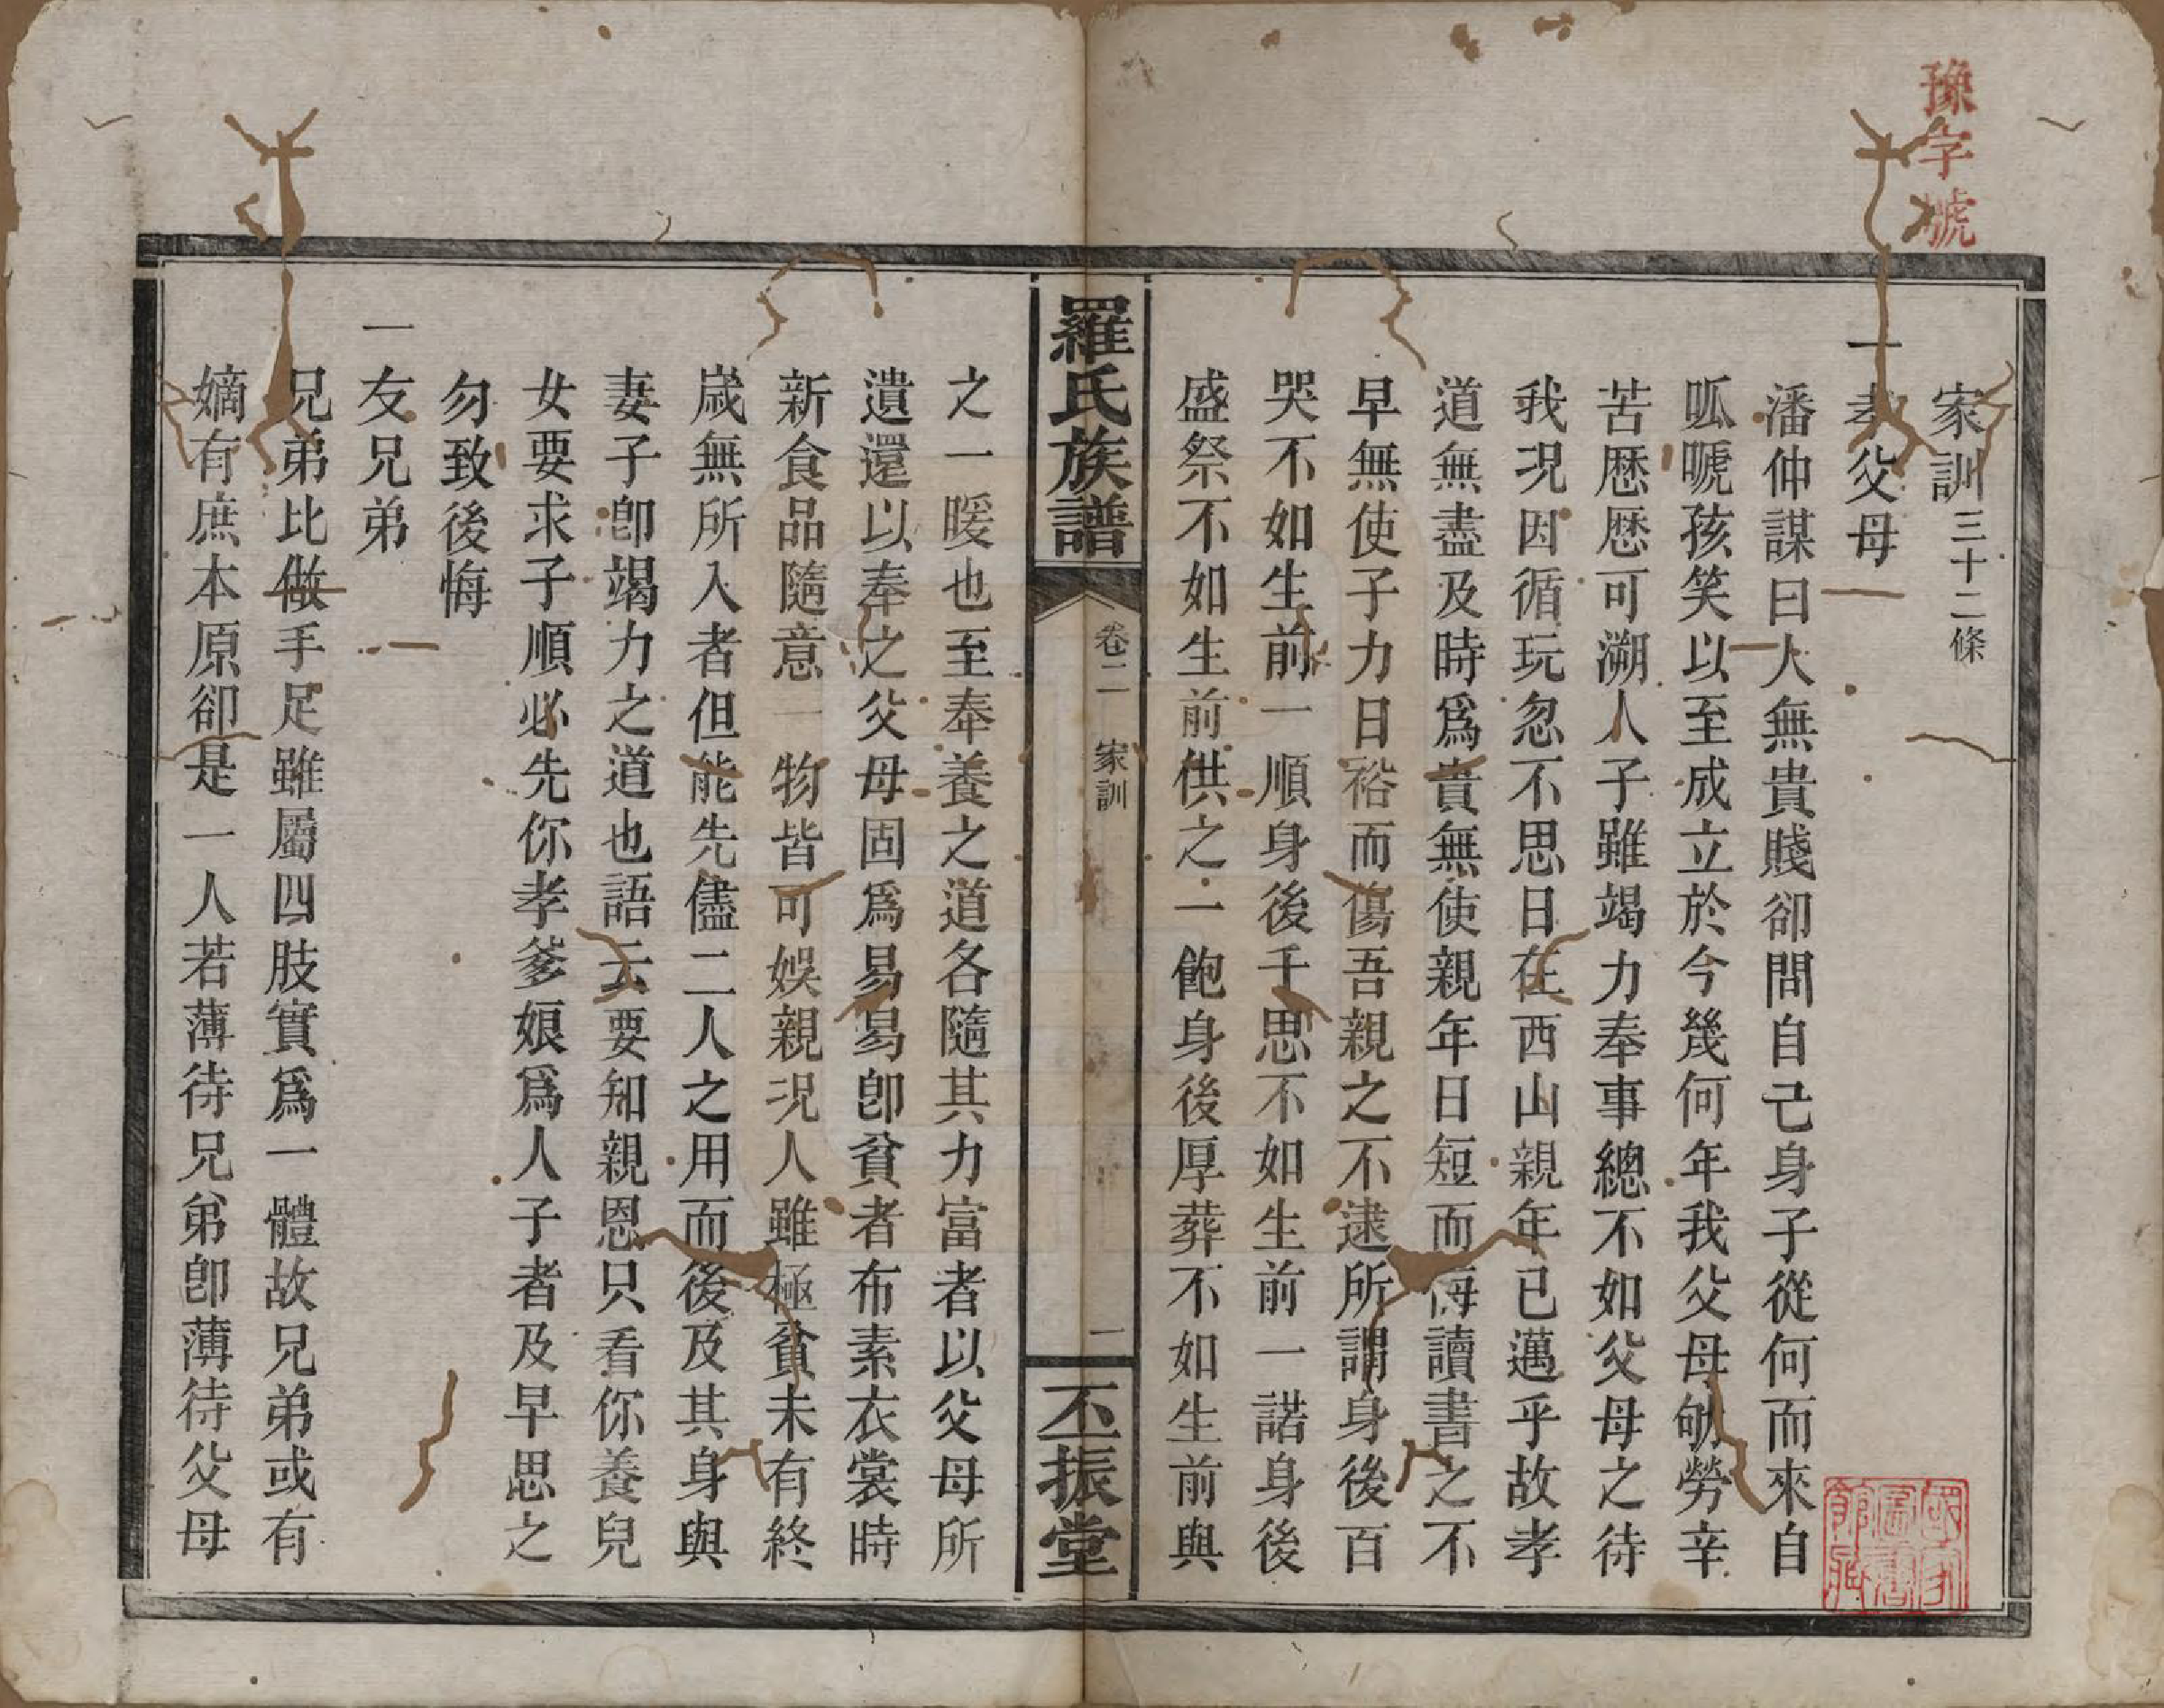 豫字號
家訓三十二條
一孝父母
潘仲謀曰人無貴賤卻問自己身子從何而來自
呱嗁孩笑以至成立於今幾何年我父母劬勞辛
苦歷歷可溯人子雖竭力奉事總不如父母之待
我況因循玩忽不思日在西山親年已邁乎故孝
道無盡及時爲貴無使親年日短而悔讀書之不
早無使子力日裕而傷吾親之不逮所謂身後百
哭不如生前一順身後千思不如生前一諾身後
盛祭不如生前供之一飽身後厚葬不如生前與
羅氏族譜
卷二 家訓
二
丕振堂
之一暖也至奉養之道各隨其力富者以父母所
遺還以奉之父母固爲易易卽貧者布素衣裳時
新食品隨意一物皆可娛親況人雖極貧未有終
歲無所入者但能先儘二人之用而後及其身與
妻子卽竭力之道也語云要知親恩只看你養兒
女要求子順必先你孝爹娘爲人子者及早思之
勿致後悔
一友兄弟
兄弟比做手足雖屬四肢實爲一體故兄弟或有
嫡有庶本原卻是一人若薄待兄弟卽薄待父母
國家圖書館藏